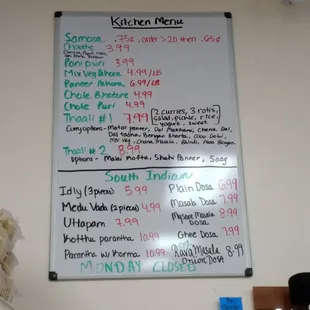 Kitchen Menu
Samosa .75¢, order >20 then .65¢
Chaats 3.99
Pani puri 3.99
Mix Veg Pakora 4.99/LB
Paneer Pakora 6.99/LB
Chole Bhature 4.99
Chole Puri 4.99
Thaali #1 7.99 2 curries, 3 rotis,
salad, pickle, rice,
yogurt, sweet
Curry options - Matar paneer, Dal Makhani, Chana Dal,
Dal Tadka, Bengan Bharta, Aloo Gobi,
Mix Veg, Chana Masala, Bhindi, Aloo Bengan
Thaali #2 8.99
Options - Malai Kofta, Shahi Paneer, Saag
South Indian
Idly (3 pieces) 5.99 Plain Dosa 6.99
Medu Vada (2 pieces) 4.99 Masala Dosa 7.99
Uttapam 7.99 Mysore Masala Dosa 8.99
Kotthu parantha 10.99 Ghee Dosa 7.99
Parantha w/ Korma 10.99 Rava Masala Onion Dosa 8.99
MONDAY CLOSED